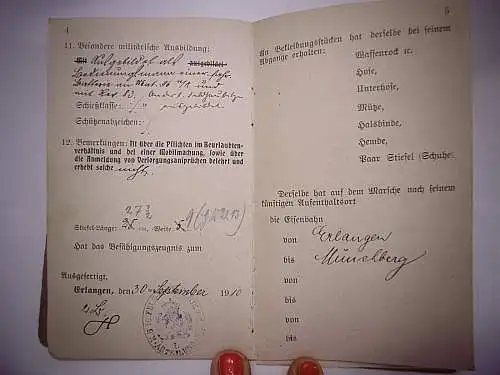 4
11. Besondere militärische Ausbildung:
Mit Ausgebildet als ausgebildet
Bedienungsmann einer
Batterie und
mit
Schießklasse: ausgebildet
Schützenabzeichen:
12. Bemerkungen: Ist über die Pflichten im Beurlaubten-
verhältnis und bei einer Mobilmachung, sowie über
die Anmeldung von Versorgungsansprüchen belehrt und
erhebt solche nicht.
27 ½
Stiefel-Länge: cm, Weite
Hat das Befähigungszeugnis zum
Ausgefertigt.
Erlangen, den 30 September 1910
5
An Bekleidungsstücken hat derselbe bei seinem
Abgange erhalten:
Waffenrock rc.
Hose,
Unterhose,
Mütze,
Halsbinde,
Hemde,
Paar Stiefel (Schuhe)
Derselbe hat auf dem Marsche nach seinem
künftigen Aufenthaltsort
die Eisenbahn
von Erlangen
bis Münchberg
von
bis
von
bis